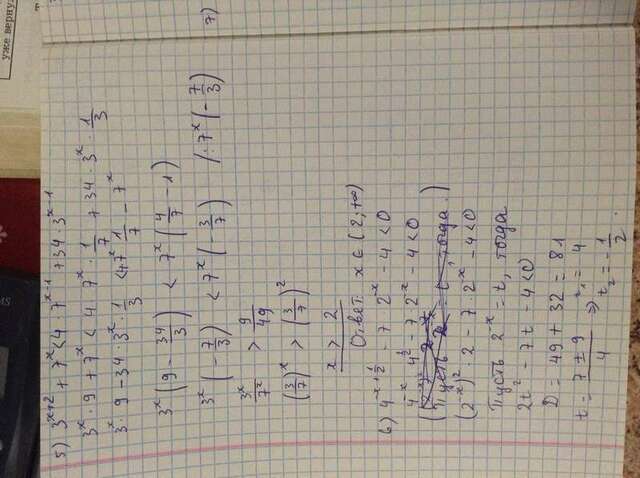 уже верну
5) 3^{x+2} + 7^x < 4 · 7^{x-1} + 34 · 3^{x-1}
3^x · 9 + 7^x < 4 · 7^x · \frac{1}{7} + 34 · 3^x · \frac{1}{3}
3^x · 9 - 34 · 3^x · \frac{1}{3} < 4 7^x \frac{1}{7} - 7^x
3^x (9 - \frac{34}{3}) < 7^x (\frac{4}{7} - 1)
3^x (-\frac{7}{3}) < 7^x (-\frac{3}{7}) (: 7^x (-\frac{7}{3})
\frac{3^x}{7^x} > \frac{9}{49}
(\frac{3}{7})^x > (\frac{3}{7})^2
x > 2
Ответ: x ∈ (2; +∞)
6) 4^{-x+\frac{1}{2}} - 7 · 2^{-x} - 4 < 0
4^{-x} · 4^{\frac{1}{2}} - 7 · 2^{-x} - 4 < 0
(Пусть = t, тогда.)
(2^{-x})^2 · 2 - 7 · 2^{-x} - 4 < 0
Пусть 2^{-x} = t, тогда
2t^2 - 7t - 4 < 0
D = 49 + 32 = 81
t = \frac{7 ± 9}{4} ⇒ t_1 = 4
t_2 = -\frac{1}{2}.
7)